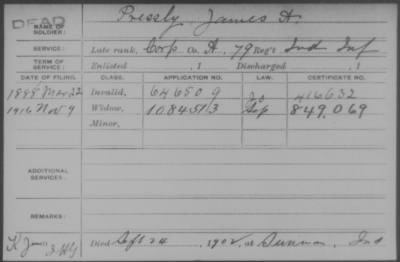 DEAD
NAME OF SOLDIER: Pressly, James A.
SERVICE: Late rank, Corp Co. A, 79 Reg't Ind Inf
TERM OF SERVICE: Enlisted , 1 Discharged , 1
DATE OF FILING. CLASS. APPLICATION NO. LAW. CERTIFICATE NO.
1888 Mar 22 Invalid, 646509 416632
1916 Nov 9 Widow, 1084513 Sep 849,069
Minor,
ADDITIONAL SERVICES:
REMARKS:
Died Sept 24, 190 , at Sunman, Ind